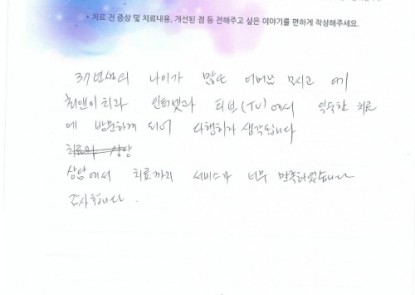 • 치료 전 증상 및 치료내용, 개선된 점 등 전해주고 싶은 이야기를 편하게 작성해주세요.
37년생의 나이가 많은 어머님 모시고 여기
치과 인터넷과 티브(TV)에서 익숙한 치료
에 방문하게 되어 다행이라 생각됩니다
상담에서 치료까지 서비스가 너무 만족하였습니다
감사합니다.